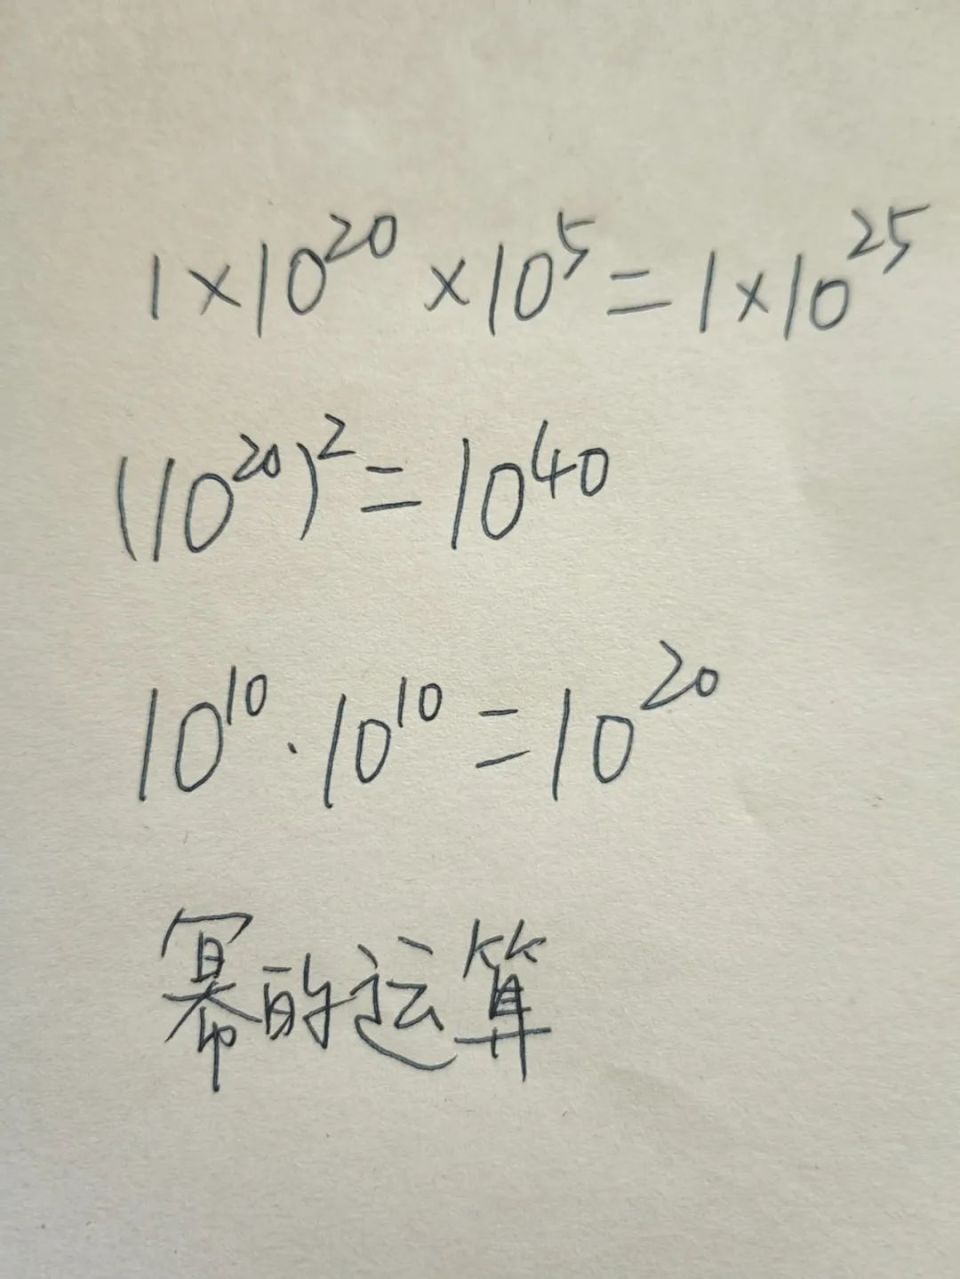 1×10²⁰×10⁵=1×10²⁵
(10²⁰)²=10⁴⁰
10¹⁰·10¹⁰=10²⁰
幂的运算